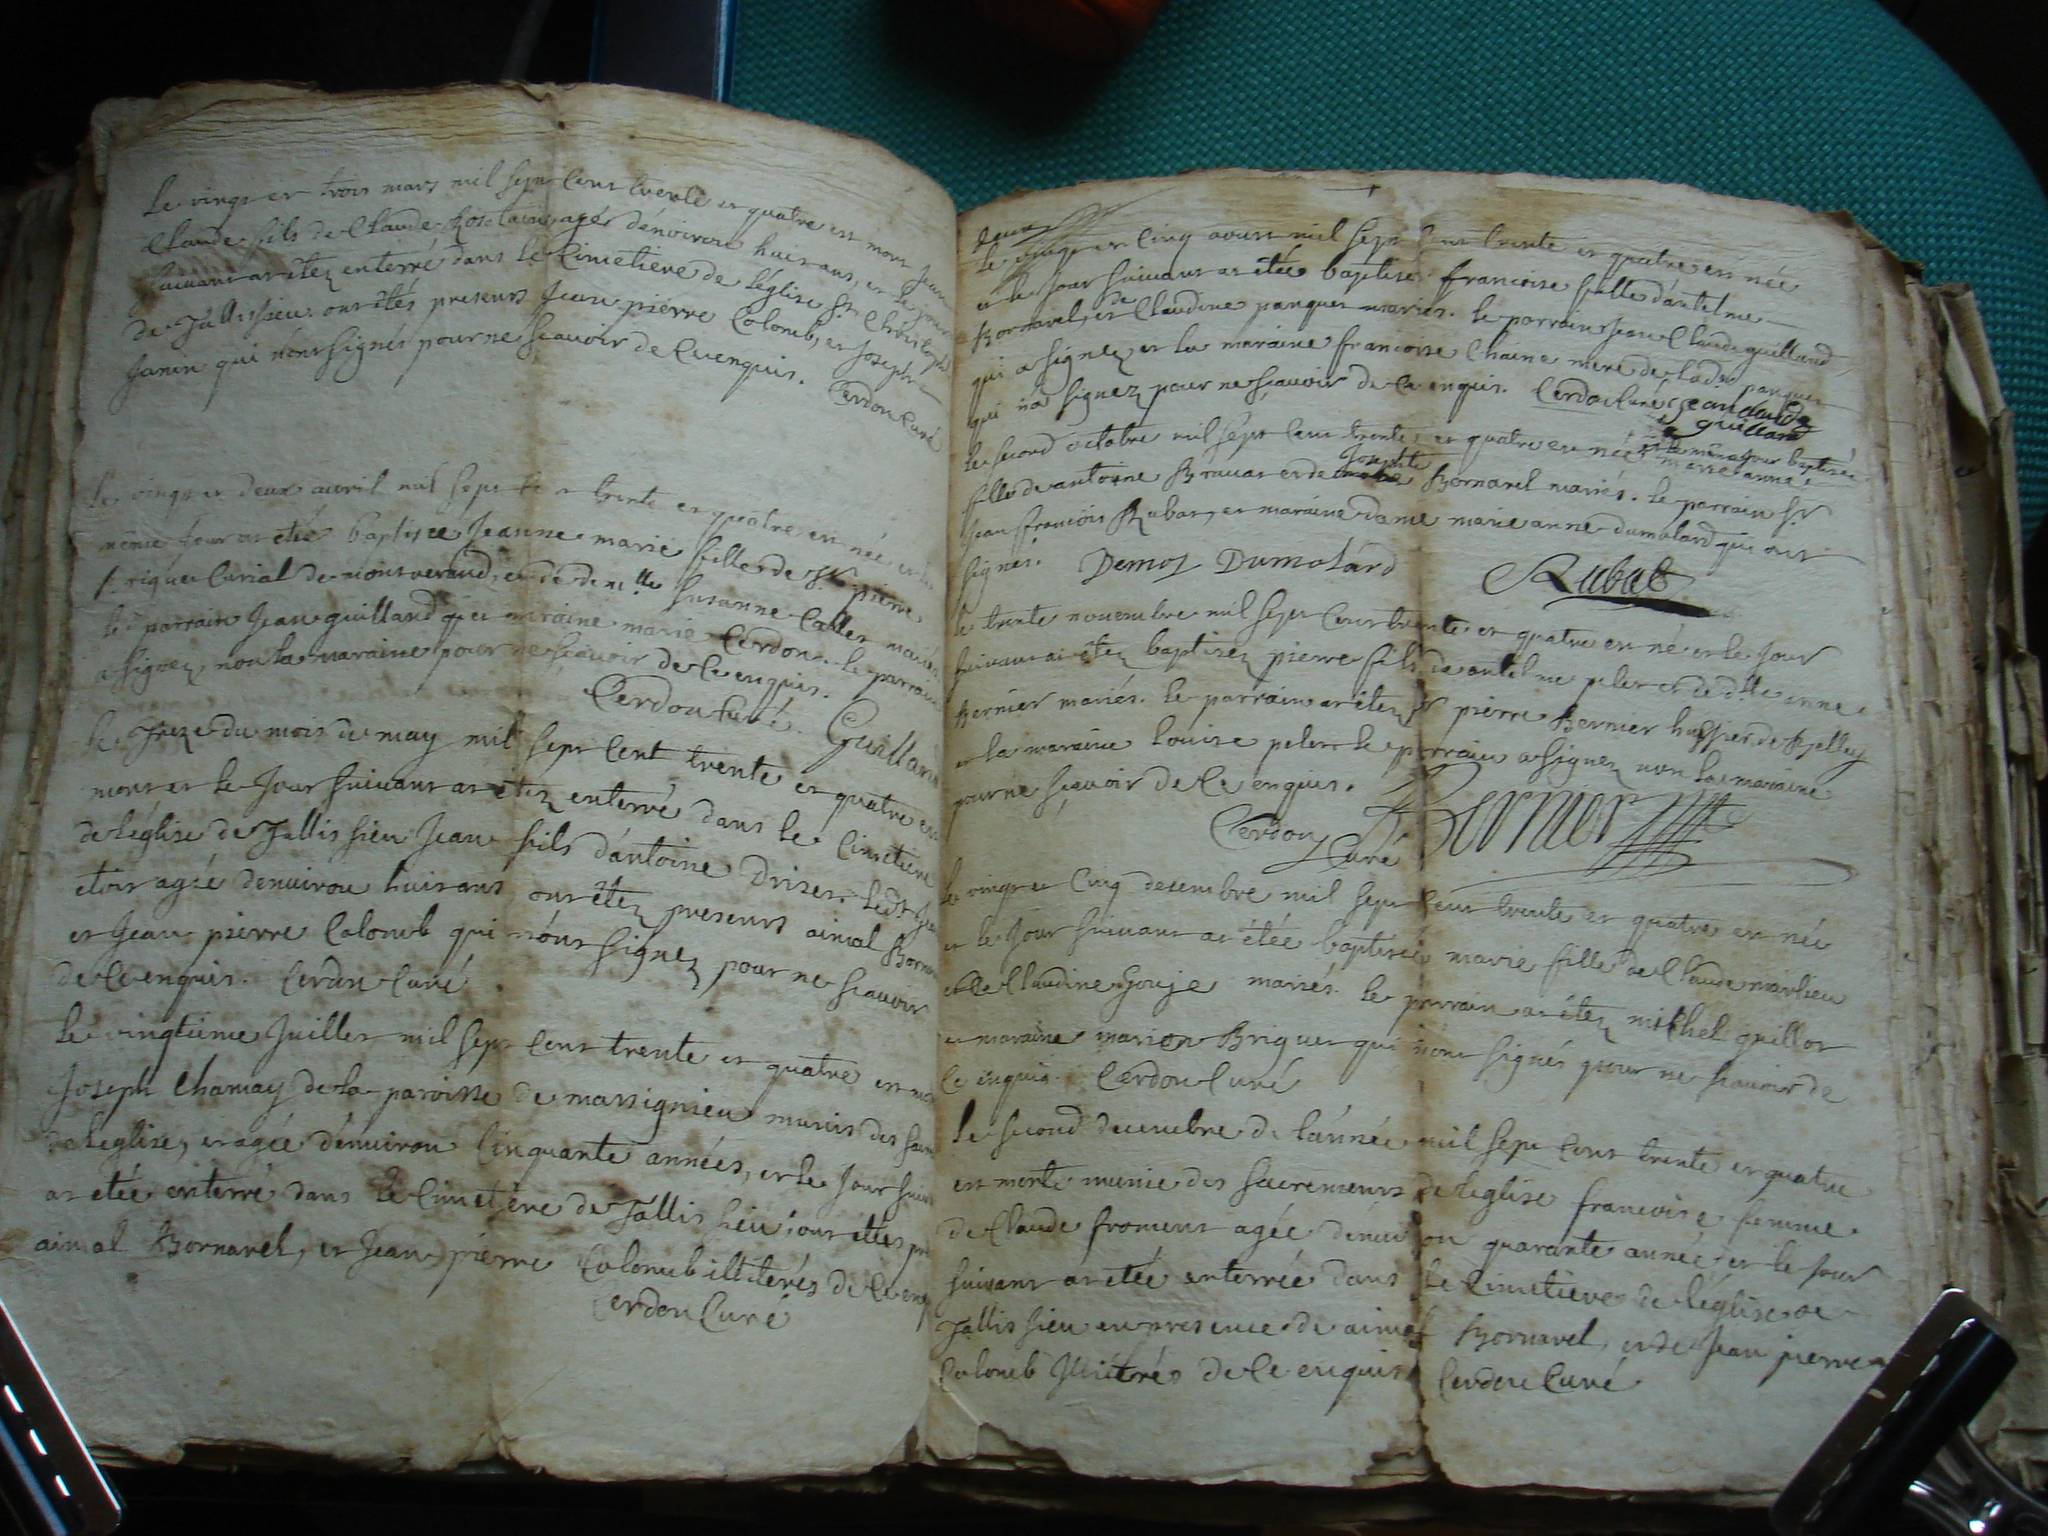 Le vingt et trois mars mil sept cent trente et quatre est mort Jean
Claude fils de Claude agé dénviron huit ans, et le jour
suivant at étez enterré dans le Cimetiere de léglise St Christophle
de Jallissieu. ont étés presents Jean pierre Colomb, et Joseph
Janin qui nont signés pour ne scavoir de Ce enquis. Cerdon Curé
Le vingt et deux auril mil sept trente et quatre est née et le
même Jour at étée baptisee Jeanne marie fille de Sr. pierre
Curial de montverand, et de dem.lle Susanne mariés
le parrain Jean guilland et maraine marie Cerdon. le parrain
a signez, non la maraine pour ne scavoir de Ce enquis.
Cerdon Curé. Guilland
le treze du mois de may mil sept Cent trente et quatre est
mort et le Jour suivant at étez enterré dans le Cimetiere
de léglise de Jallissieu Jean fils dántoine Driset. ledt Jean
étoit agée denuiron huit ans ont étez presents aimal Born
et Jean pierre Colomb qui nónt signez pour ne scauoir
de Ce enquis. Cerdon Curé
Le vingtiéme Juillet mil sept Cent trente et quatre est
Joseph Chamay de la paroisse de massignieu munis des
de leglise, et agée dénuiron Cinquante années, et le Jour
at étée enterré dans le Cimetére de Jallissieu. ont étés
aimal Bornarel, et Jean pierre Colomb illiterés de Ce
Cerdon Curé
Le vingt et Cinq aoust mil sept Cent trente et quatre est née
et le Jour suivant at étée baptisée francoise fille dántelme
Bornarel, et de Claudine panquet mariés. le parrain Jean Claude guilland
qui a signez et la maraine francoise Chaine mere de lad.te panquet
qui na signez pour ne scavoir de Ce enquis. Cerdon Curé Jean claude
guilland
et le même Jour baptisée
le second octobre mil sept Cent trente et quatre est née marie anne
fille de antoine Bravat et de Josephte Bornarel mariés. le parrain Sr.
Jean francois Rubat, et maraine dame marie anne dumolard qui ont
signés. Demoz Dumolárd Rubat
le trente nouembre mil sept Cent trente et quatre est né et le Jour
suivant at étez baptisez pierre fils de antelme pelet et de d.lle anne
Bernier mariés. le parrain at étez Sr pierre Bernier hussier de Belley
et la maraine Louise pelet le parrain a signez non la maraine
pour ne sçavoir de Ce enquis.
Cerdon Curé Bernier
Le vingt et Cinq desembre mil sept Cent trente et quatre est née
et le Jour suivant at étée baptisée marie fille de Claude marlieu
et de Claudine Gouje mariés. le parrain at étez michel guillot
et maraine marion Briguet qui nónt signés pour ne scauoir de
Ce enquis. Cerdon Curé
Le second decembre de lánnée mil sept Cent trente et quatre
est morte munie des sacrements de leglise francoise femme
de Claude froment agée dénuiron quarante année, et le Jour
suivant at étée enterrée dans le Cimetiere de léglise de
Jallissieu en presence de aimal Bornarel, et de Jean pierre
Colomb Illitérés de Ce enquis Cerdon Curé